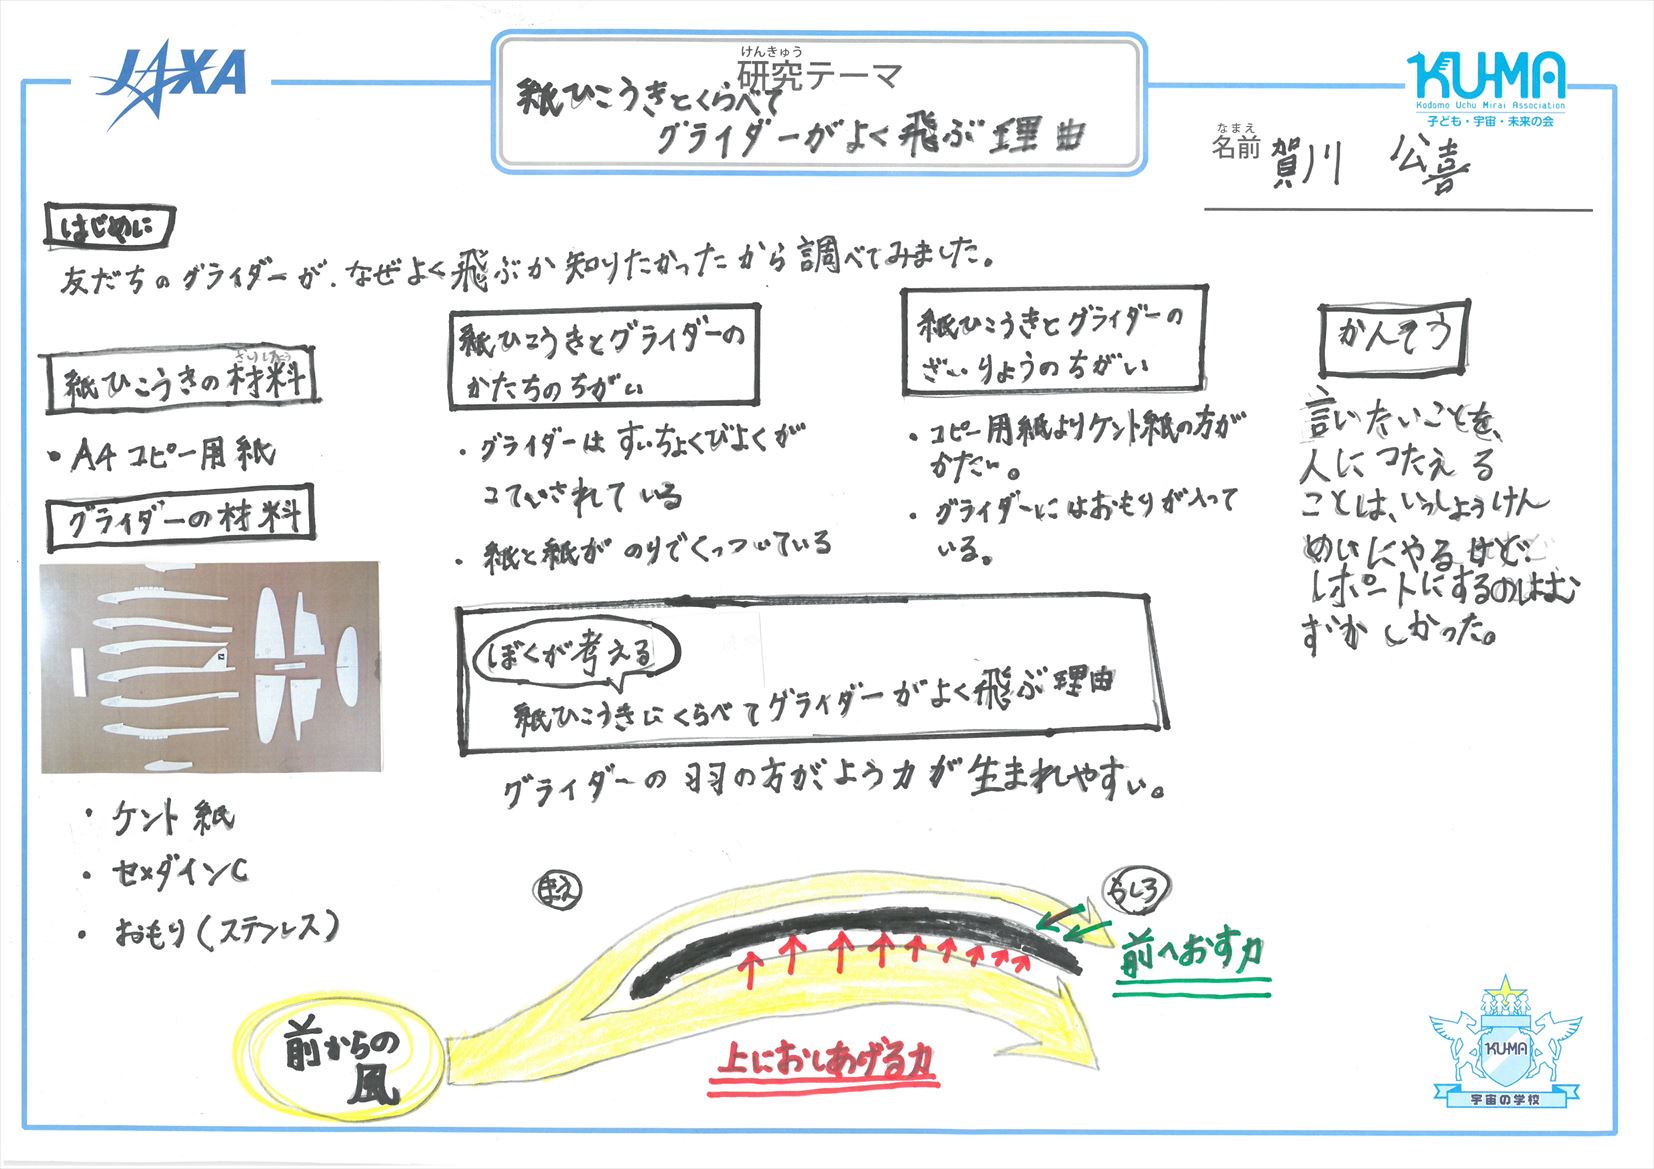 JAXA
けんきゅう
研究テーマ
紙ひこうきとくらべて
グライダーがよく飛ぶ理由
KU-MA
Kodomo Uchu Mirai Association
子ども・宇宙・未来の会
なまえ
名前 賀川 公喜
はじめに
友だちのグライダーが、なぜよく飛ぶか知りたかったから調べてみました。
ざいりょう
紙ひこうきの材料
・A4コピー用紙
グライダーの材料
・ケント紙
・セメダインC
・おもり(ステンレス)
紙ひこうきとグライダーの
かたちのちがい
・グライダーはすいちょくびよくが
こていされている
・紙と紙がのりでくっついている
紙ひこうきとグライダーの
ざいりょうのちがい
・コピー用紙よりケント紙の方が
かたい。
・グライダーにはおもりが入って
いる。
ぼくが考える
紙ひこうきにくらべてグライダーがよく飛ぶ理由
グライダーの羽の方がよう力が生まれやすい。
まえ
うしろ
前へおす力
前からの
風
上におしあげる力
かんそう
言いたいことを、
人につたえる
ことは、いっしょうけん
めいにやるけど
レポートにするのはむ
ずかしかった。
KU-MA
宇宙の学校